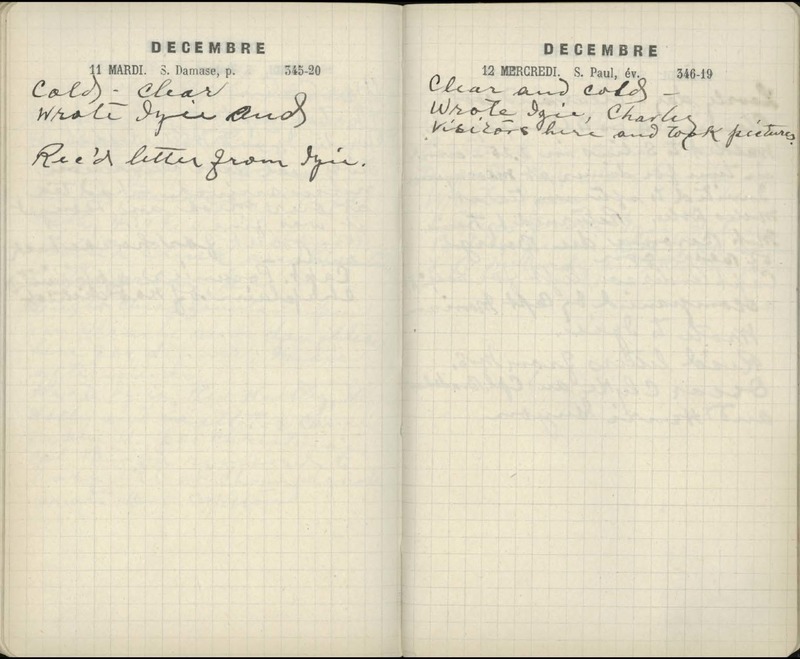 DECEMBRE
11 MARDI. S. Damase, p. 345-20
Cold - clear
Wrote Izie and
Rec'd letter from Izie.
DECEMBRE
12 MERCREDI. S. Paul, év. 346-19
Clear and cold -
Wrote Izie, Charley
Visitors here and took pictures